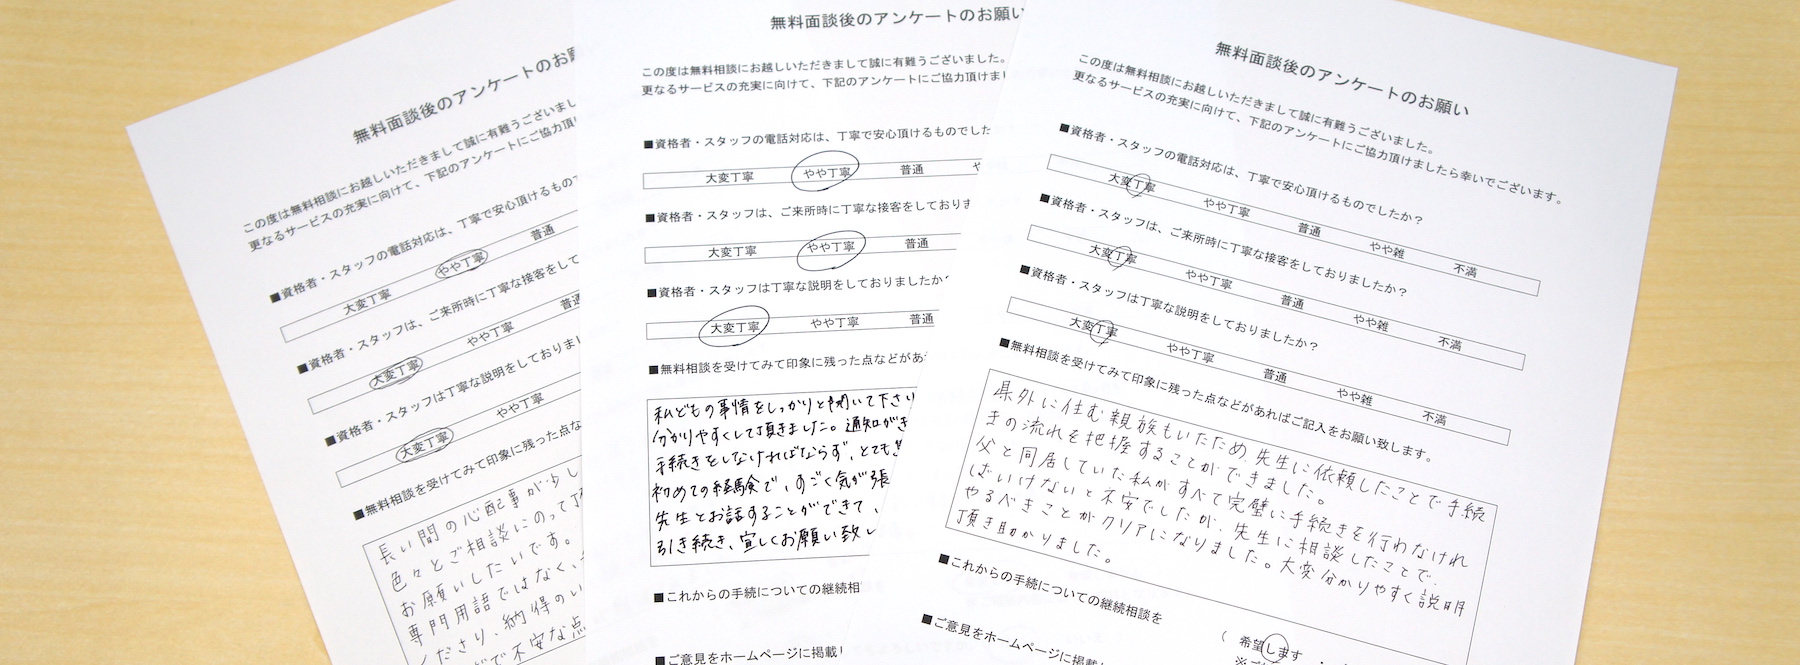 無料面談後のアンケートのお願
この度は無料相談にお越しいただきまして誠に有難うございまし
更なるサービスの充実に向けて、下記のアンケートにご協力頂け
■資格者・スタッフの電話対応は、丁寧で安心頂けるもので
大変丁寧 やや丁寧 普通
■資格者・スタッフは、ご来所時に丁寧な接客をして
大変丁寧 やや丁寧 普通
■資格者・スタッフは丁寧な説明をしておりまし
大変丁寧 やや丁寧
■無料相談を受けてみて印象に残った点な
長い間の心配事が少し
色々とご相談にのって頂
お願いしたいです。
専門用語ではなく、
ください、納得のい
で不安な点
無料面談後のアンケートのお願い
この度は無料相談にお越しいただきまして誠に有難うございました。
更なるサービスの充実に向けて、下記のアンケートにご協力頂けまし
■資格者・スタッフの電話対応は、丁寧で安心頂けるものでした
大変丁寧 やや丁寧 普通 や
■資格者・スタッフは、ご来所時に丁寧な接客をしておりま
大変丁寧 やや丁寧 普通
■資格者・スタッフは丁寧な説明をしておりましたか
大変丁寧 やや丁寧 普通
■無料相談を受けてみて印象に残った点などがあ
私どもの事情をしっかりと聞いて下さり
分かりやすくして頂きました。通知がき
手続きをしなければならず、とても
初めての経験で、すごく気が張
先生とお話することができて、
引き続き、宜しくお願い致し
■これからの手続についての継続相
■ご意見をホームページに掲載
無料面談後のアンケートのお願い
この度は無料相談にお越しいただきまして誠に有難うございました。
更なるサービスの充実に向けて、下記のアンケートにご協力頂けましたら幸いでございます。
■資格者・スタッフの電話対応は、丁寧で安心頂けるものでしたか？
大変丁寧 やや丁寧 普通 やや雑 不満
■資格者・スタッフは、ご来所時に丁寧な接客をしておりましたか？
大変丁寧 やや丁寧 普通 やや雑 不満
■資格者・スタッフは丁寧な説明をしておりましたか？
大変丁寧 やや丁寧 普通 やや雑 不満
■無料相談を受けてみて印象に残った点などがあればご記入をお願い致します。
県外に住む親族もいたため先生に依頼したことで手続
きの流れを把握することができました。
父と同居していた私がすべて完璧に手続きを行わなけれ
ばいけないと不安でしたが、先生に相談したことで、
やるべきことがクリアになりました。大変分かりやすく説明
頂き助かりました。
■これからの手続についての継続相談を
（ 希望します ・
■ご意見をホームページに掲載